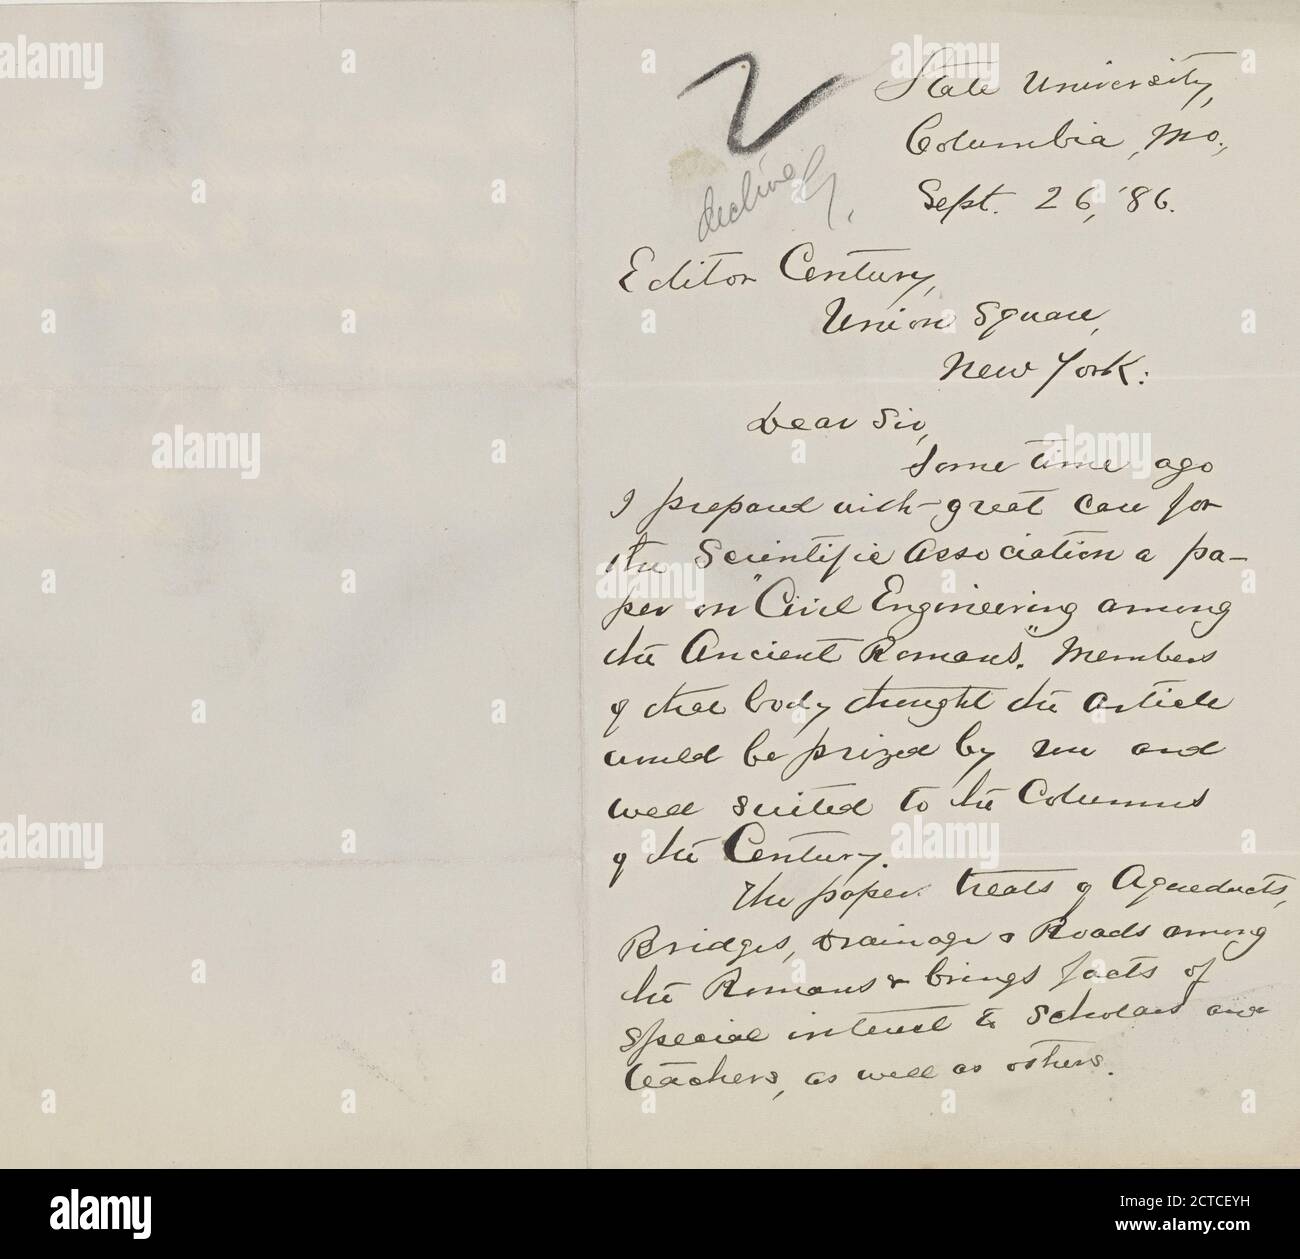 State University,
Columbia, Mo.,
Sept. 26, '86.
decline
Editor Century,
Union Square,
New York:
Dear Sir,
Some time ago
I prepared with great care for
the Scientific Association a pa-
per on "Civil Engineering among
the Ancient Romans." Members
of that body thought the article
would be prized by you and
well suited to the Columns
of the Century.
The paper treats of Aqueducts,
Bridges, Drainage & Roads among
the Romans & brings facts of
special interest to Scholars and
teachers, as well as others.
alamy
www.alamy.com
Image ID: 2CTCEYH